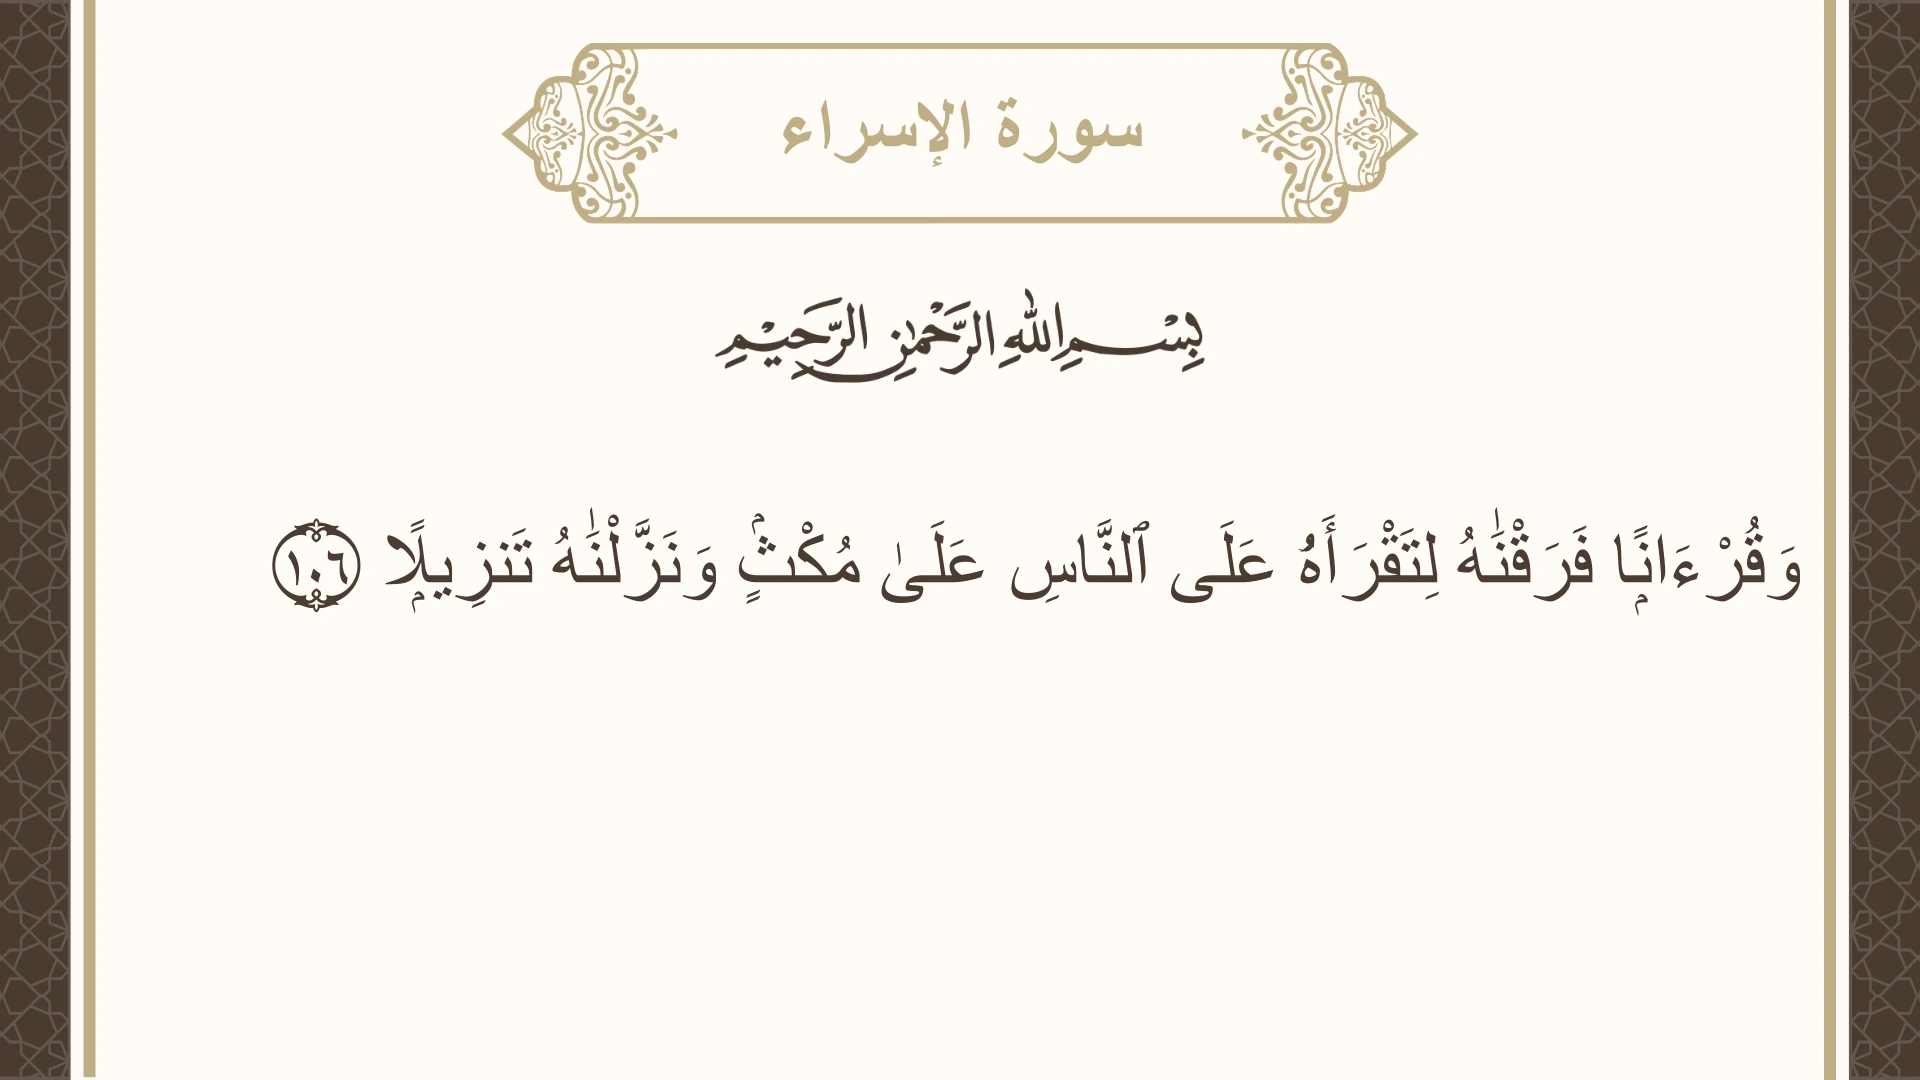 سورة الإسراء
بِسْمِ اللهِ الرَّحْمٰنِ الرَّحِيْمِ
وَقُرْءَانًۭا فَرَقْنَٰهُ لِتَقْرَأَهُۥ عَلَى ٱلنَّاسِ عَلَىٰ مُكْثٍۢ وَنَزَّلْنَٰهُ تَنزِيلًۭا ١٠٦